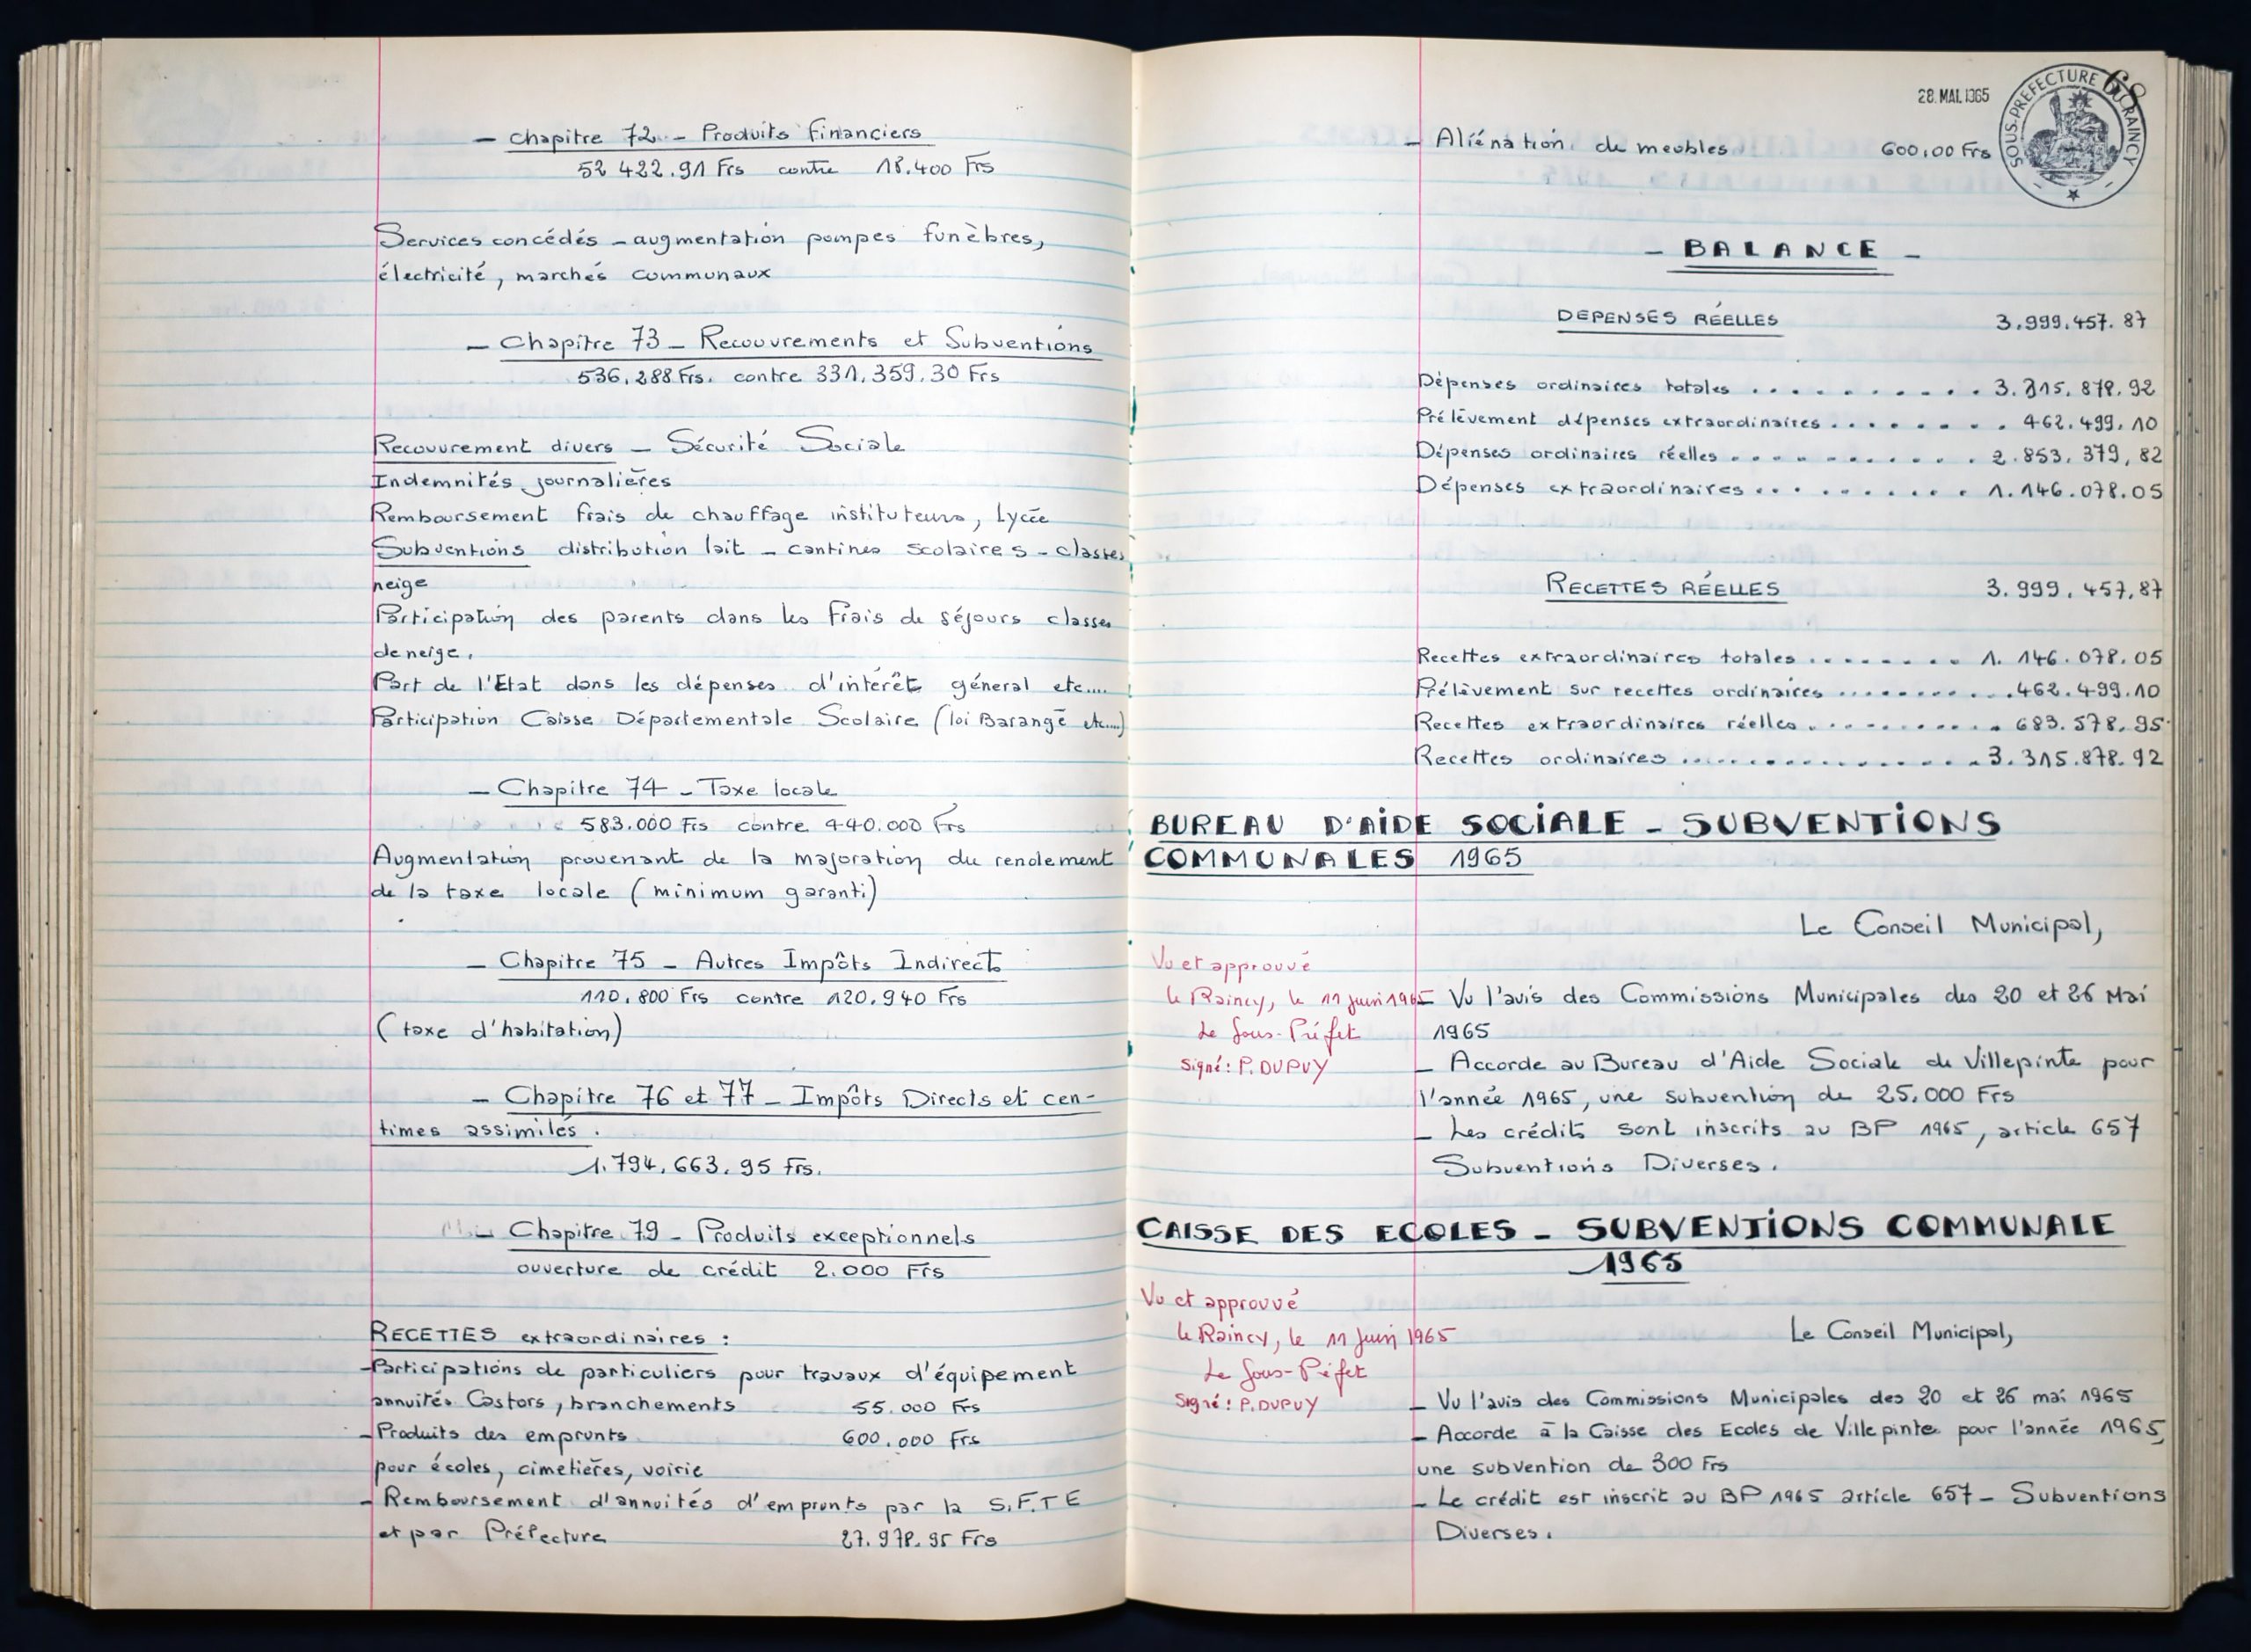 — Chapitre 72 - Produits financiers
52 422.91 Frs contre 18.400 Frs
Services concédés - augmentation pompes funèbres,
électricité, marchés communaux
— Chapitre 73 - Recouvrements et Subventions
536.288 Frs. contre 331.359.30 Frs
Recouvrement divers - Sécurité Sociale
Indemnités journalières
Remboursement frais de chauffage instituteurs, Lycée
Subventions distribution lait - cantines scolaires - classes
neige
Participation des parents dans les frais de séjours classes
de neige.
Part de l'Etat dans les dépenses d'intérêt général etc....
Participation Caisse Départementale Scolaire (loi Barangé etc....)
— Chapitre 74 - Taxe locale
583.000 Frs contre 440.000 Frs
Augmentation provenant de la majoration du rendement
de la taxe locale (minimum garanti)
— Chapitre 75 - Autres Impôts Indirects
110.800 Frs contre 120.940 Frs
(taxe d'habitation)
— Chapitre 76 et 77 - Impôts Directs et cen-
times assimilés.
1.794.663.95 Frs.
— Chapitre 79 - Produits exceptionnels
ouverture de crédit 2.000 Frs
RECETTES extraordinaires :
- Participations de particuliers pour travaux d'équipement
annuités Castors, branchements 55.000 Frs
- Produits des emprunts 600.000 Frs
pour écoles, cimetières, voirie
- Remboursement d'annuités d'emprunts par la S.F.T.E
et par Préfecture 27.978.95 Frs
28. MAI. 1965
68
SOUS-PREFECTURE DU RAINCY
- Aliénation de meubles 600,00 Frs
- BALANCE -
DEPENSES RÉELLES 3.999.457.87
Dépenses ordinaires totales .......... 3.315.878.92
Prélèvement dépenses extraordinaires ........ 462.499.10
Dépenses ordinaires réelles ........... 2.853.379,82
Dépenses extraordinaires .......... 1.146.078.05
RECETTES RÉELLES 3.999.457.87
Recettes extraordinaires totales ........ 1.146.078.05
Prélèvement sur recettes ordinaires .......... 462.499.10
Recettes extraordinaires réelles .......... 683.578.95
Recettes ordinaires ................ 3.315.878.92
BUREAU D'AIDE SOCIALE - SUBVENTIONS
COMMUNALES 1965
Le Conseil Municipal,
Vu et approuvé
le Raincy, le 11 juin 1965
Le Sous-Préfet
Signé : P. DUPUY
- Vu l'avis des Commissions Municipales des 20 et 26 Mai
1965
- Accorde au Bureau d'Aide Sociale de Villepinte pour
l'année 1965, une subvention de 25.000 Frs
- Les crédits sont inscrits au BP 1965, article 657
Subventions Diverses.
CAISSE DES ECOLES - SUBVENTIONS COMMUNALE
1965
Vu et approuvé
le Raincy, le 11 Juin 1965
Le Sous-Préfet
Signé : P. DUPUY
Le Conseil Municipal,
- Vu l'avis des Commissions Municipales des 20 et 26 mai 1965
- Accorde à la Caisse des Ecoles de Villepinte pour l'année 1965,
une subvention de 300 Frs
- Le crédit est inscrit au BP 1965 article 657 - Subventions
Diverses.